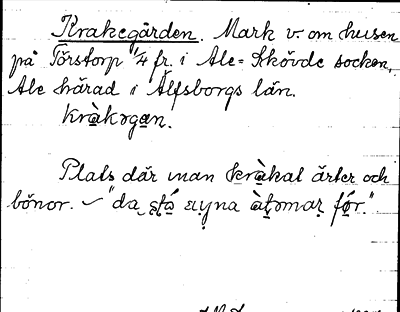 Krakegården. Mark v. om husen
på Törstorp 1/4 fr. i Ale-Skövde socken,
Ale härad i Älfsborgs län.
kràkəgan.
Plats där man kràkat ärter och
bönor. "da stå